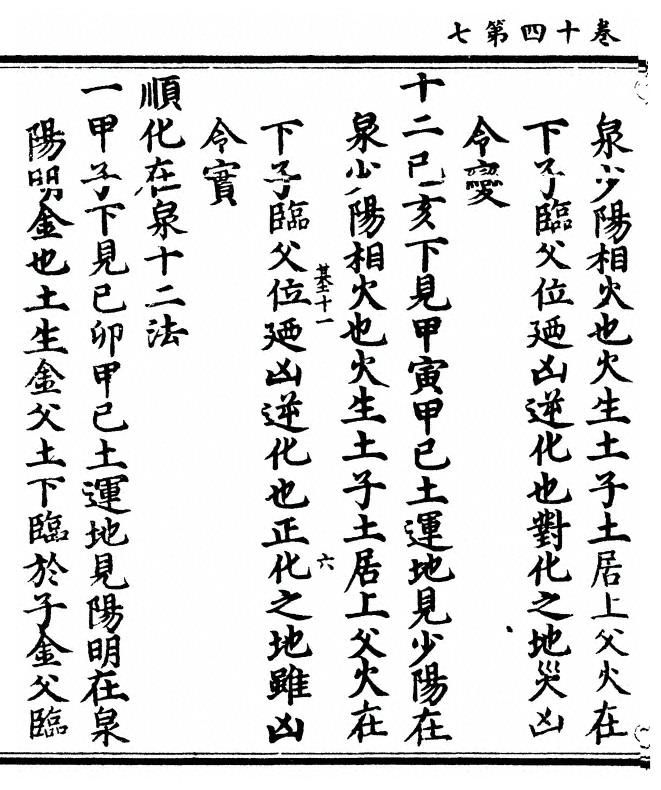 卷十四第七
泉少陽相火也火生土子土居上父火在
下子臨父位迺凶逆化也對化之地災凶
令變
十二己亥下見甲寅甲己土運地見少陽在
泉少陽相火也火生土子土居上父火在
下子臨父位迺凶逆化也正化之地雖凶
令實
順化在泉十二法
一甲子下見己卯甲己土運地見陽明在泉
陽明金也土生金父土下臨於子金父臨
基十一
六